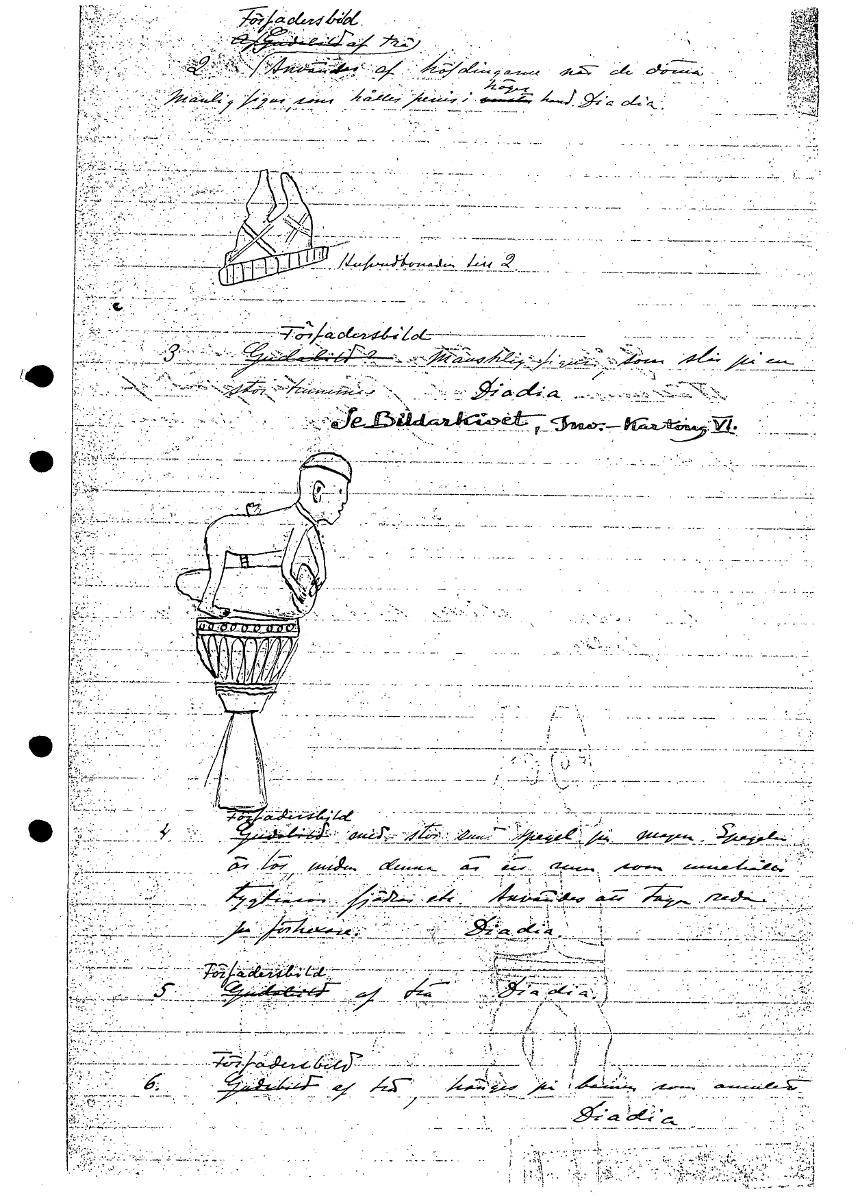 Förfadersbild
Gudabild af trä
2 Användes af höfdingarne när de döma
höger
Manlig figur, som håller penis i hand. Diadia.
Hufvudbonaden till 2
Förfadersbild
3 Gudabild? Mänsklig figur, som slår på en
stor trumma Diadia
Se Bildarkivet, Inv.-Kartong VI.
Förfadersbild
4 Gudabild med stor spegel på magen Spegeln
är lös, under denna är ett rum som innehåller
tygtrasor fjädrar etc Användes att taga reda
på förhexare. Diadia.
Förfadersbild
5 Gudabild af trä Diadia.
Förfadersbild
6. Gudabild af trä, hänges på barnen som amulett
Diadia